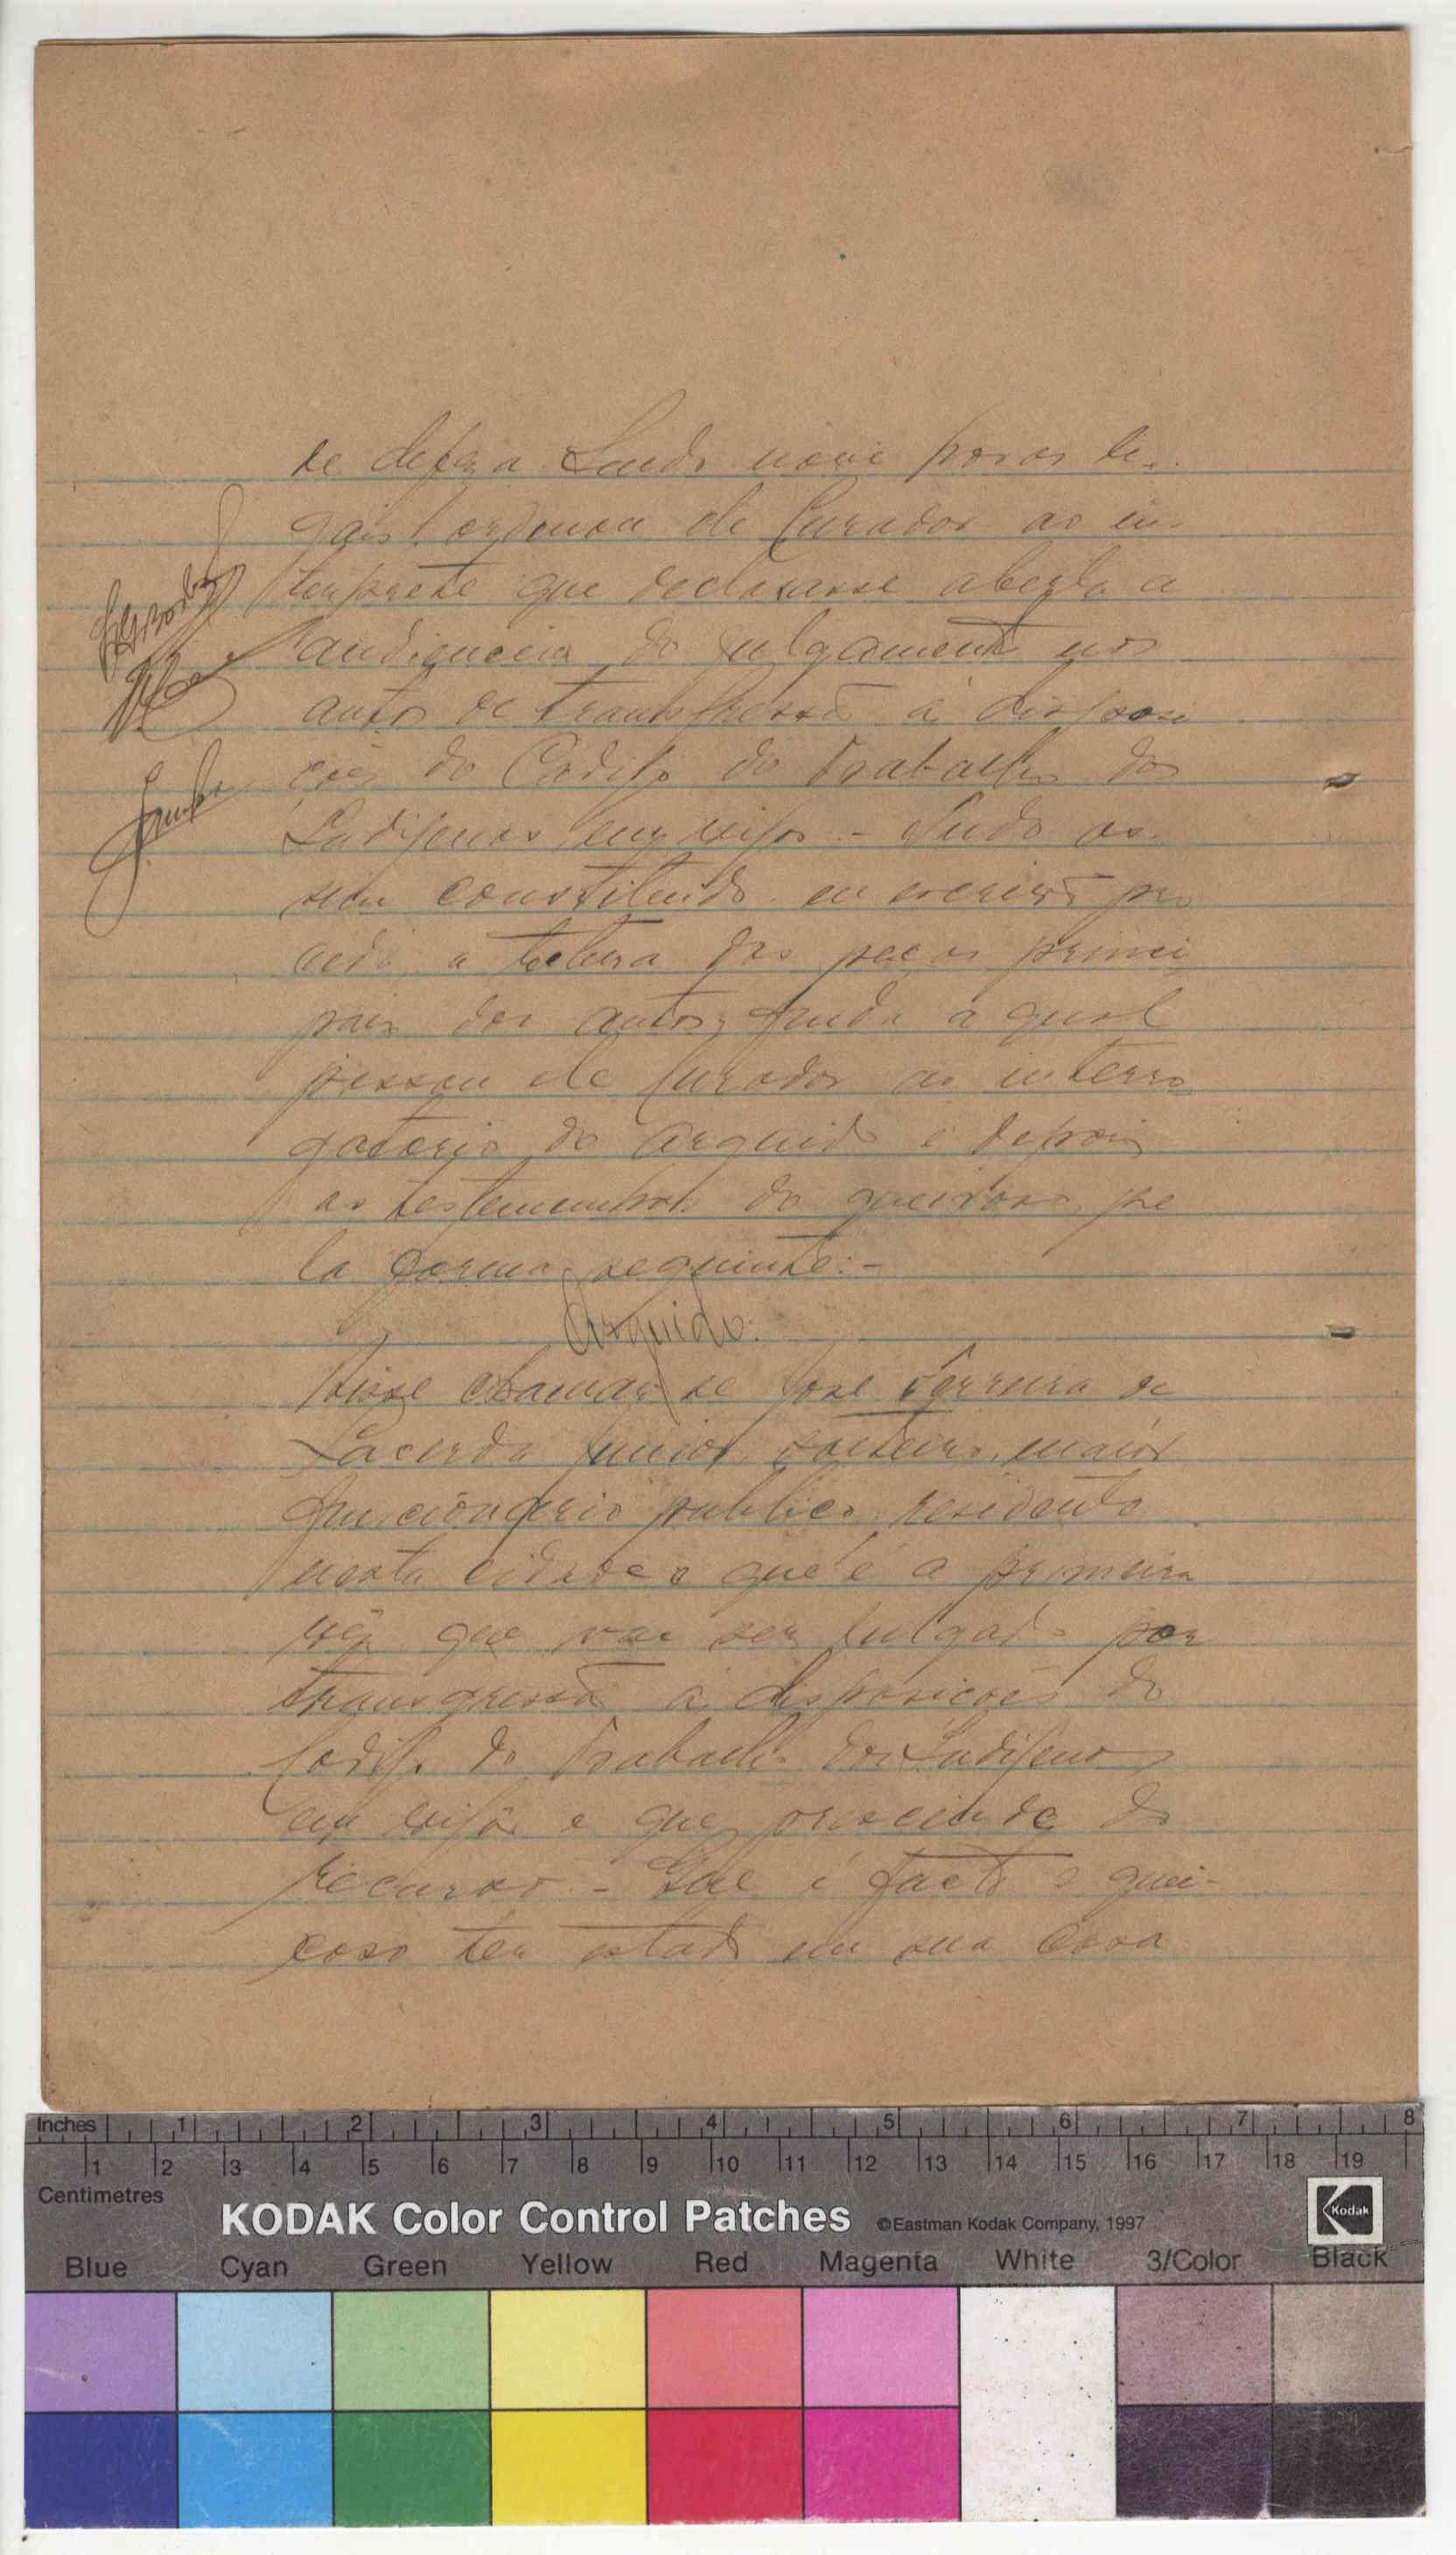 de defeza. Sendo nove horas le-
gais, ordenou ele Curador ao in-
terprete que declarasse aberta a
audiencia do julgamento nos
autos de transgressão á disposi
ções do Codigo do Trabalho dos
Indigenas em vigor - Tudo as-
sim constituido eu escrivão pro
cedi a leitura das peças princi
pais dos autos, finda a qual
passou ele Curador ao interro
gatorio do arguido e depois
as testemunhas do queixoso, pe
la forma seguinte: -
Arguido.
Disse chamar-se José Ferreira de
Lacerda Junior, solteiro, maior
funcionario publico, residente
nesta cidade e que é a primeira
vêz que vae ser julgado por
transgressão á disposições do
Codigo do Trabalho dos Indigenas
em vigôr e que prescinde do
recurso - Que é facto o quei-
xoso ter estado em sua casa
Inches 1 2 3 4 5 6 7 8
1 2 3 4 5 6 7 8 9 10 11 12 13 14 15 16 17 18 19
Centimetres
KODAK Color Control Patches ©Eastman Kodak Company, 1997 Kodak
Blue Cyan Green Yellow Red Magenta White 3/Color Black